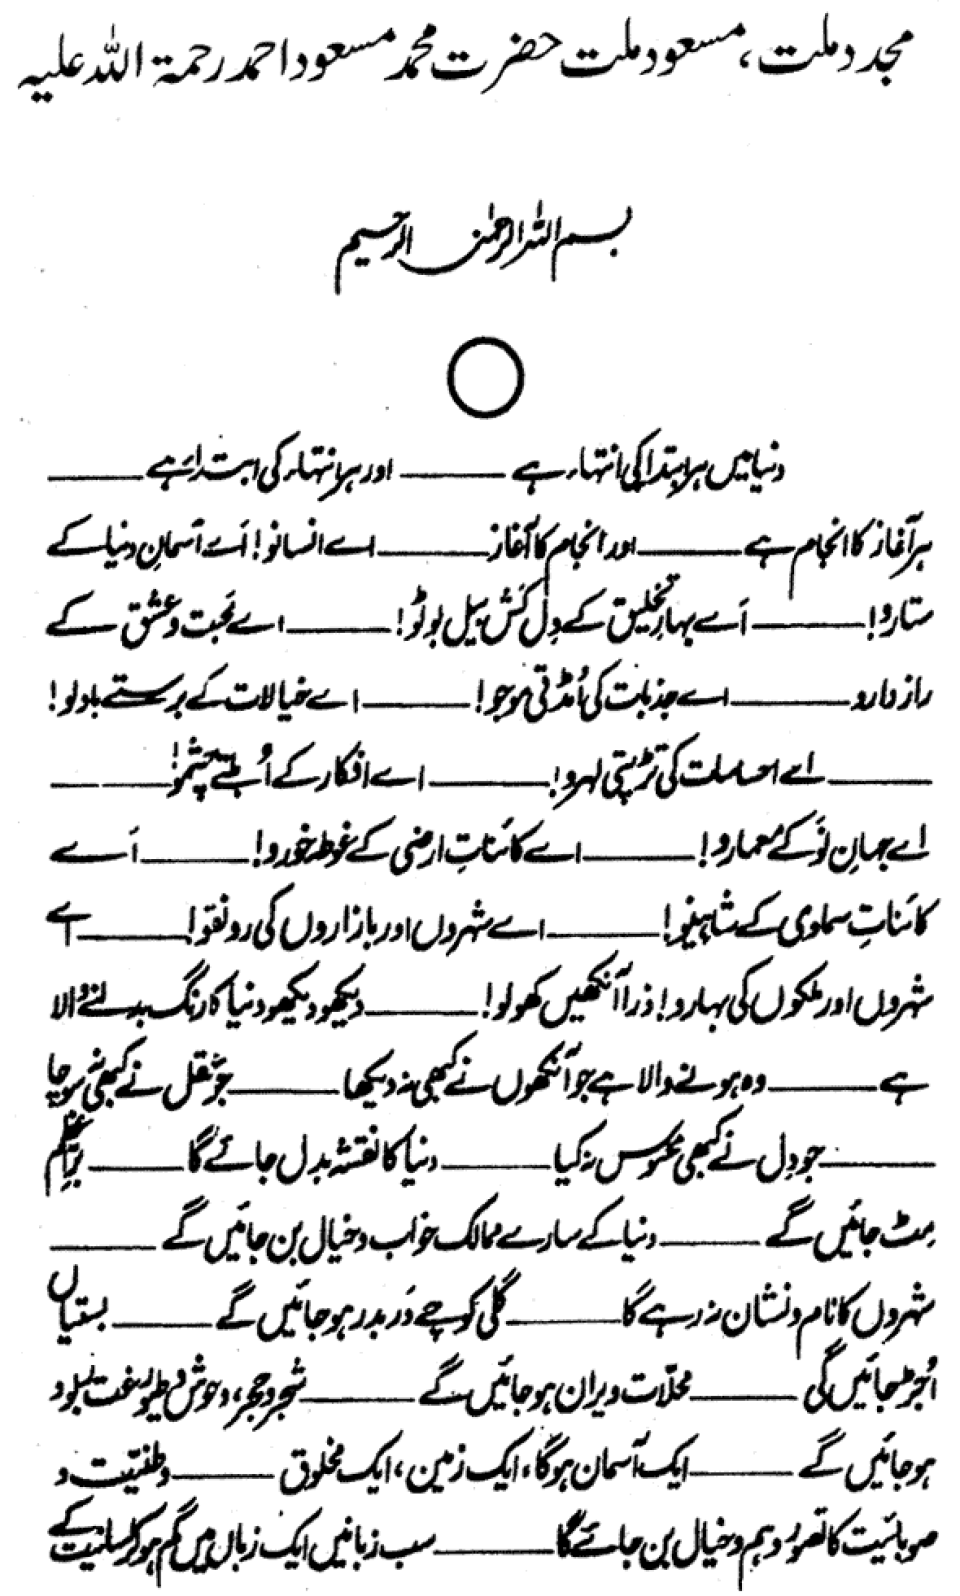 مجدد ملت، مسعود ملت حضرت محمد مسعود احمد رحمۃ اللہ علیہ
بسم اللہ الرحمٰن الرحیم
دنیا میں ہر ابتدا کی انتہاء ہے ــــــــ اور ہر انتہاء کی ابتداء ہے ــــــــ
ہر آغاز کا انجام ہے ــــــــ اور انجام کا آغاز ــــــــ اے انسانو! اَے آسمانِ دنیا کے
ستارو! ــــــــ اَے بہارِ تخلیق کے دِل کَش بیل بوٹو! ــــــــ اے مَحبت و عشق کے
راز دارو ــــــــ اے جذبات کی اُمڈتی موجو! ــــــــ اے خیالات کے برستے بادلو!
ــــــــ اے احساسات کی تڑپتی لہرو! ــــــــ اے افکار کے اُبلتے چشمو! ــــــــ
اے جہانِ نَو کے معمارو! ــــــــ اے کائناتِ ارضی کے غوطہ خورو! ــــــــ اَے
کائناتِ سماوی کے شاہینو! ــــــــ اے شہروں اور بازاروں کی رونقو! ــــــــ اے
شہروں اور ملکوں کی بہارو! ذرا آنکھیں کھولو! ــــــــ دیکھو دیکھو دنیا کا رنگ بدلنے والا
ہے ــــــــ وہ ہونے والا ہے جو آنکھوں نے کبھی نہ دیکھا ــــــــ جو عقل نے کبھی نہ سوچا
ــــــــ جو دِل نے کبھی محسوس نہ کیا ــــــــ دنیا کا نقشہ بدل جائے گا ــــــــ برِّاعظم
مِٹ جائیں گے ــــــــ دنیا کے سارے ممالک خواب و خیال بن جائیں گے ــــــــ
شہروں کا نام و نشان نہ رہے گا ــــــــ گلی کوچے دَر بدر ہو جائیں گے ــــــــ بستیاں
اُجڑ جائیں گی ــــــــ محلّات ویران ہو جائیں گے ــــــــ شجر و حجر، وحوش و طیور غت بود
ہو جائیں گے ــــــــ ایک آسمان ہو گا، ایک زمین، ایک مخلوق ــــــــ وطنیّت و
صوبائیت کا تصور وہم و خیال بن جائے گا ــــــــ سب زبانیں ایک زباں میں گم ہو کر لسانیت کے